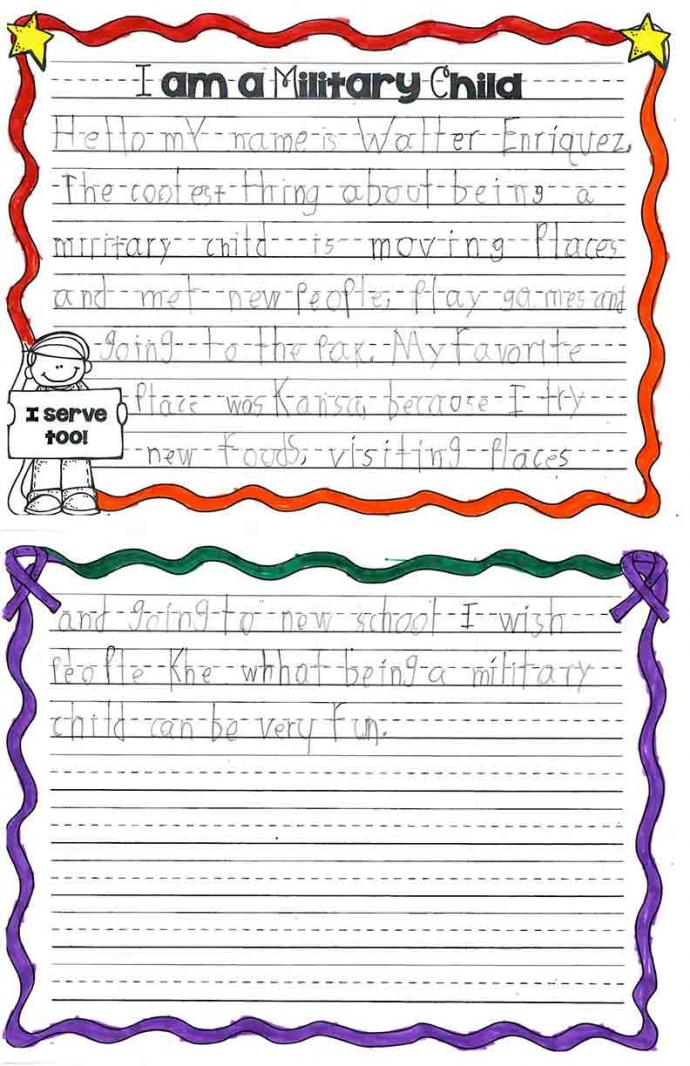 I am a Military Child
Hello mY name is Walter Enriquez,
The coolest thing about being a
military child is moving Places
and met new People, Play games and
going to the Pak. My Favorite
Place was Kansa, because I try
I serve
too!
new foods, visiting Places
and going to new school I wish
PeoPle Khe whhat being a military
child can be very fun.